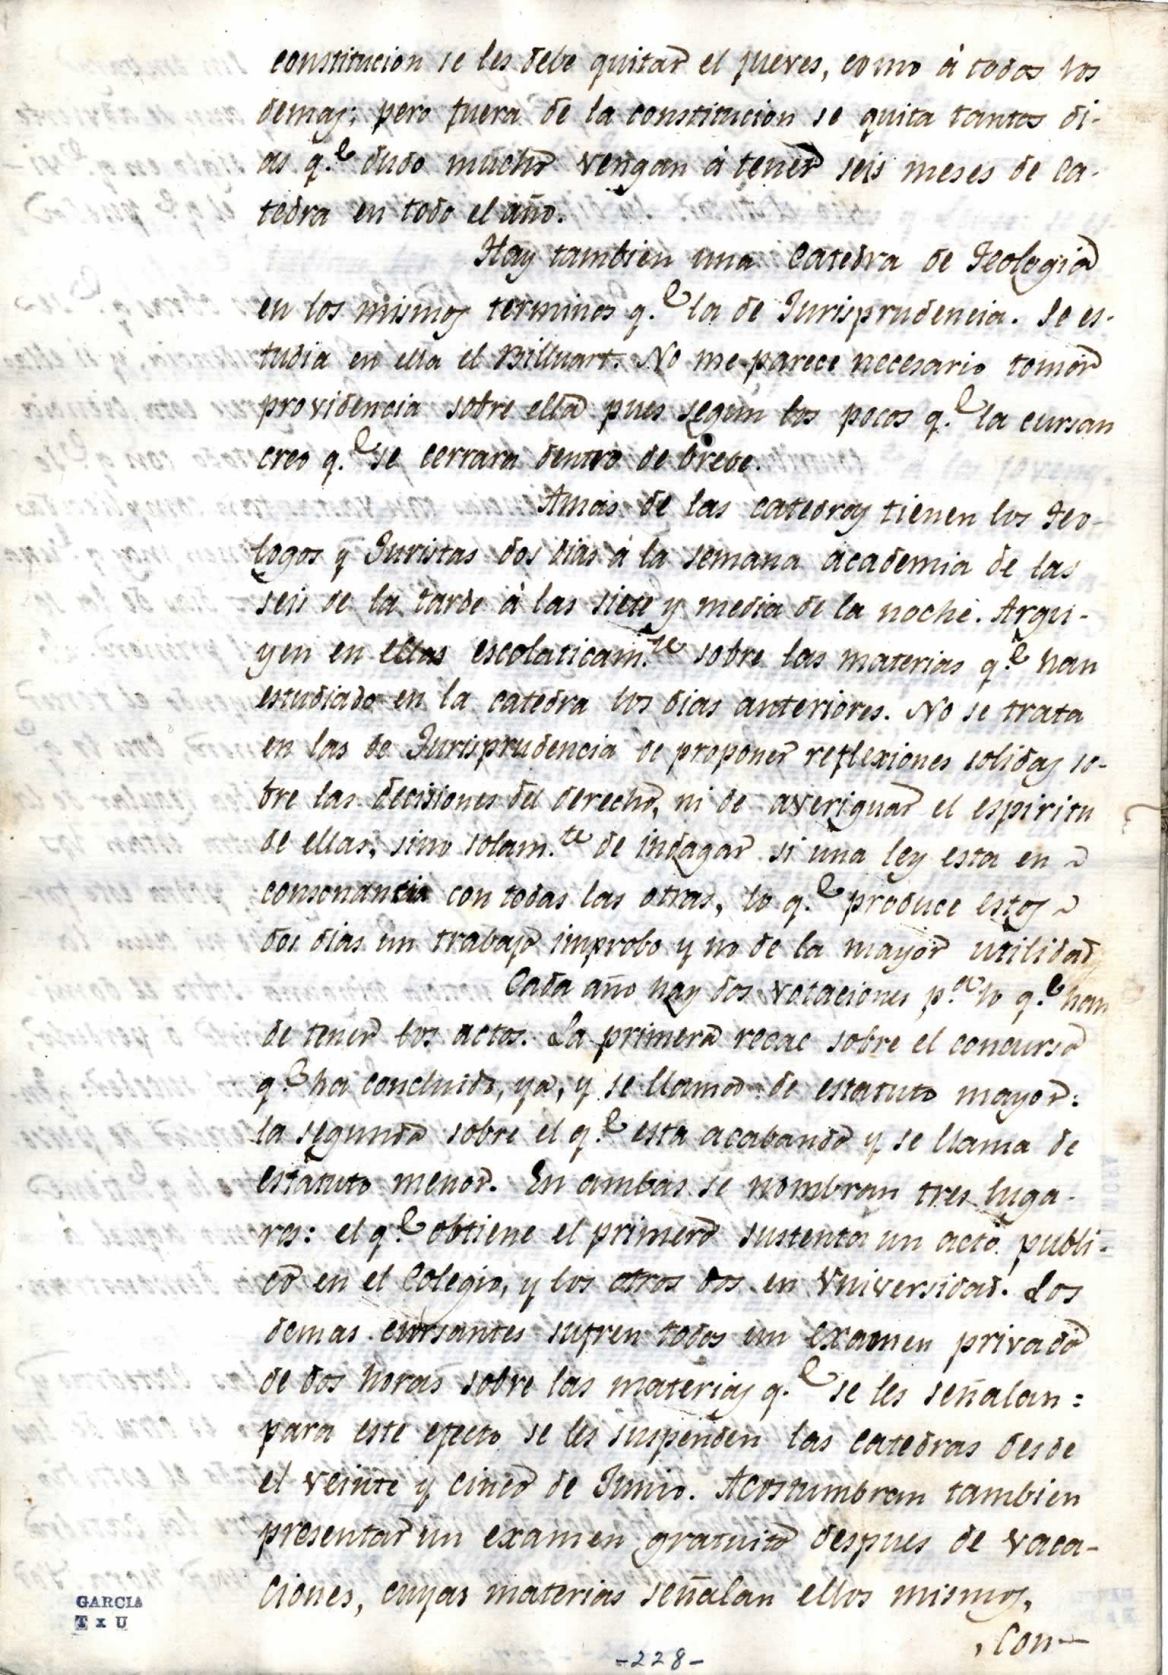 constitucion se les debe quitar el jueves, como á todos los
demas; pero fuera de la constitucion se quita tantos di-
as q.e dudo mucho vengan á tener seis meses de Ca-
tedra en todo el año.
Hay tambien una Catedra de Teologia
en los mismos terminos q.e la de Jurisprudencia. Se es-
tudia en ella el Billuart. No me parece necesario tomar
providencia sobre ella pues segun los pocos q.e la cursan
creo q.e se cerrara dentro de breve.
Amas de las catedras tienen los Teo-
logos y Juristas dos dias á la semana academia de las
seis de la tarde á las siete y media de la noche. Argu-
yen en ellas escolaticam.te sobre las materias q.e han
estudiado en la catedra los dias anteriores. No se trata
en las de Jurisprudencia de proponer reflexiones solidas so-
bre las decisiones del derecho, ni de averiguar el espiritu
de ellas, sino solam.te de indagar si una ley esta en
consonantia con todas las otras, lo q.e produce estos
dos dias un trabajo improbo y no de la mayor utilidad
Cada año hay dos votaciones p.a lo q.e han
de tener los actos. La primera recae sobre el concurso
q.e ha concluido, ya, y se llama de estatuto mayor:
la segunda sobre el q.e esta acabando y se llama de
estatuto menor. En ambas se nombran tres luga-
res: el q.e obtiene el primero sustenta un acto publi-
co en el Colegio, y los otros dos en Vniversidad. Los
demas cursantes sufren todos un examen privado
de dos horas sobre las materias q.e se les señalan:
para este efecto se les suspenden las catedras desde
el veinte y cinco de Junio. Acostumbran tambien
presentar un examen gratuito despues de vaca-
ciones, cuyas materias señalan ellos mismos,
Con-
GARCIA
T x U
-228-